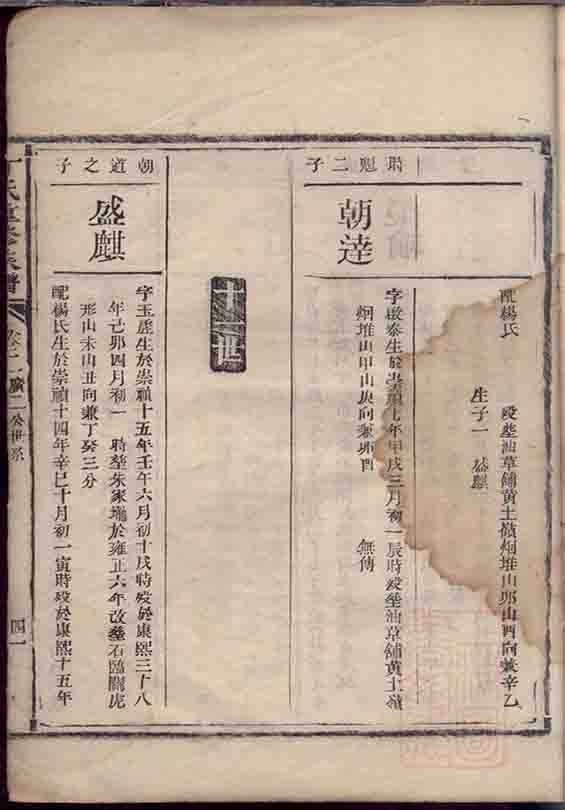 配楊氏 歿塟油草鋪黃土嶺炯堆山卯山酉向兼辛乙
生子一 盛麒
魁二子
朝逹
字啟泰生於崇禎七年甲戌三月初一辰時歿塟油草鋪黃土嶺
炯堆山甲山庚向兼卯酉 無傳
十一世
朝道之子
盛麒
字玉麐生於崇禎十五年壬午六月初十戌時歿於康熙三十八
年己卯四月初一 時塟朱家塆於雍正六年改塟石臨關虎
形山未山丑向兼丁癸三分
配楊氏生於崇禎十四年辛巳十月初一寅時歿於康熙十五年
丁氏重修族譜 卷二 廣二公世系 四一